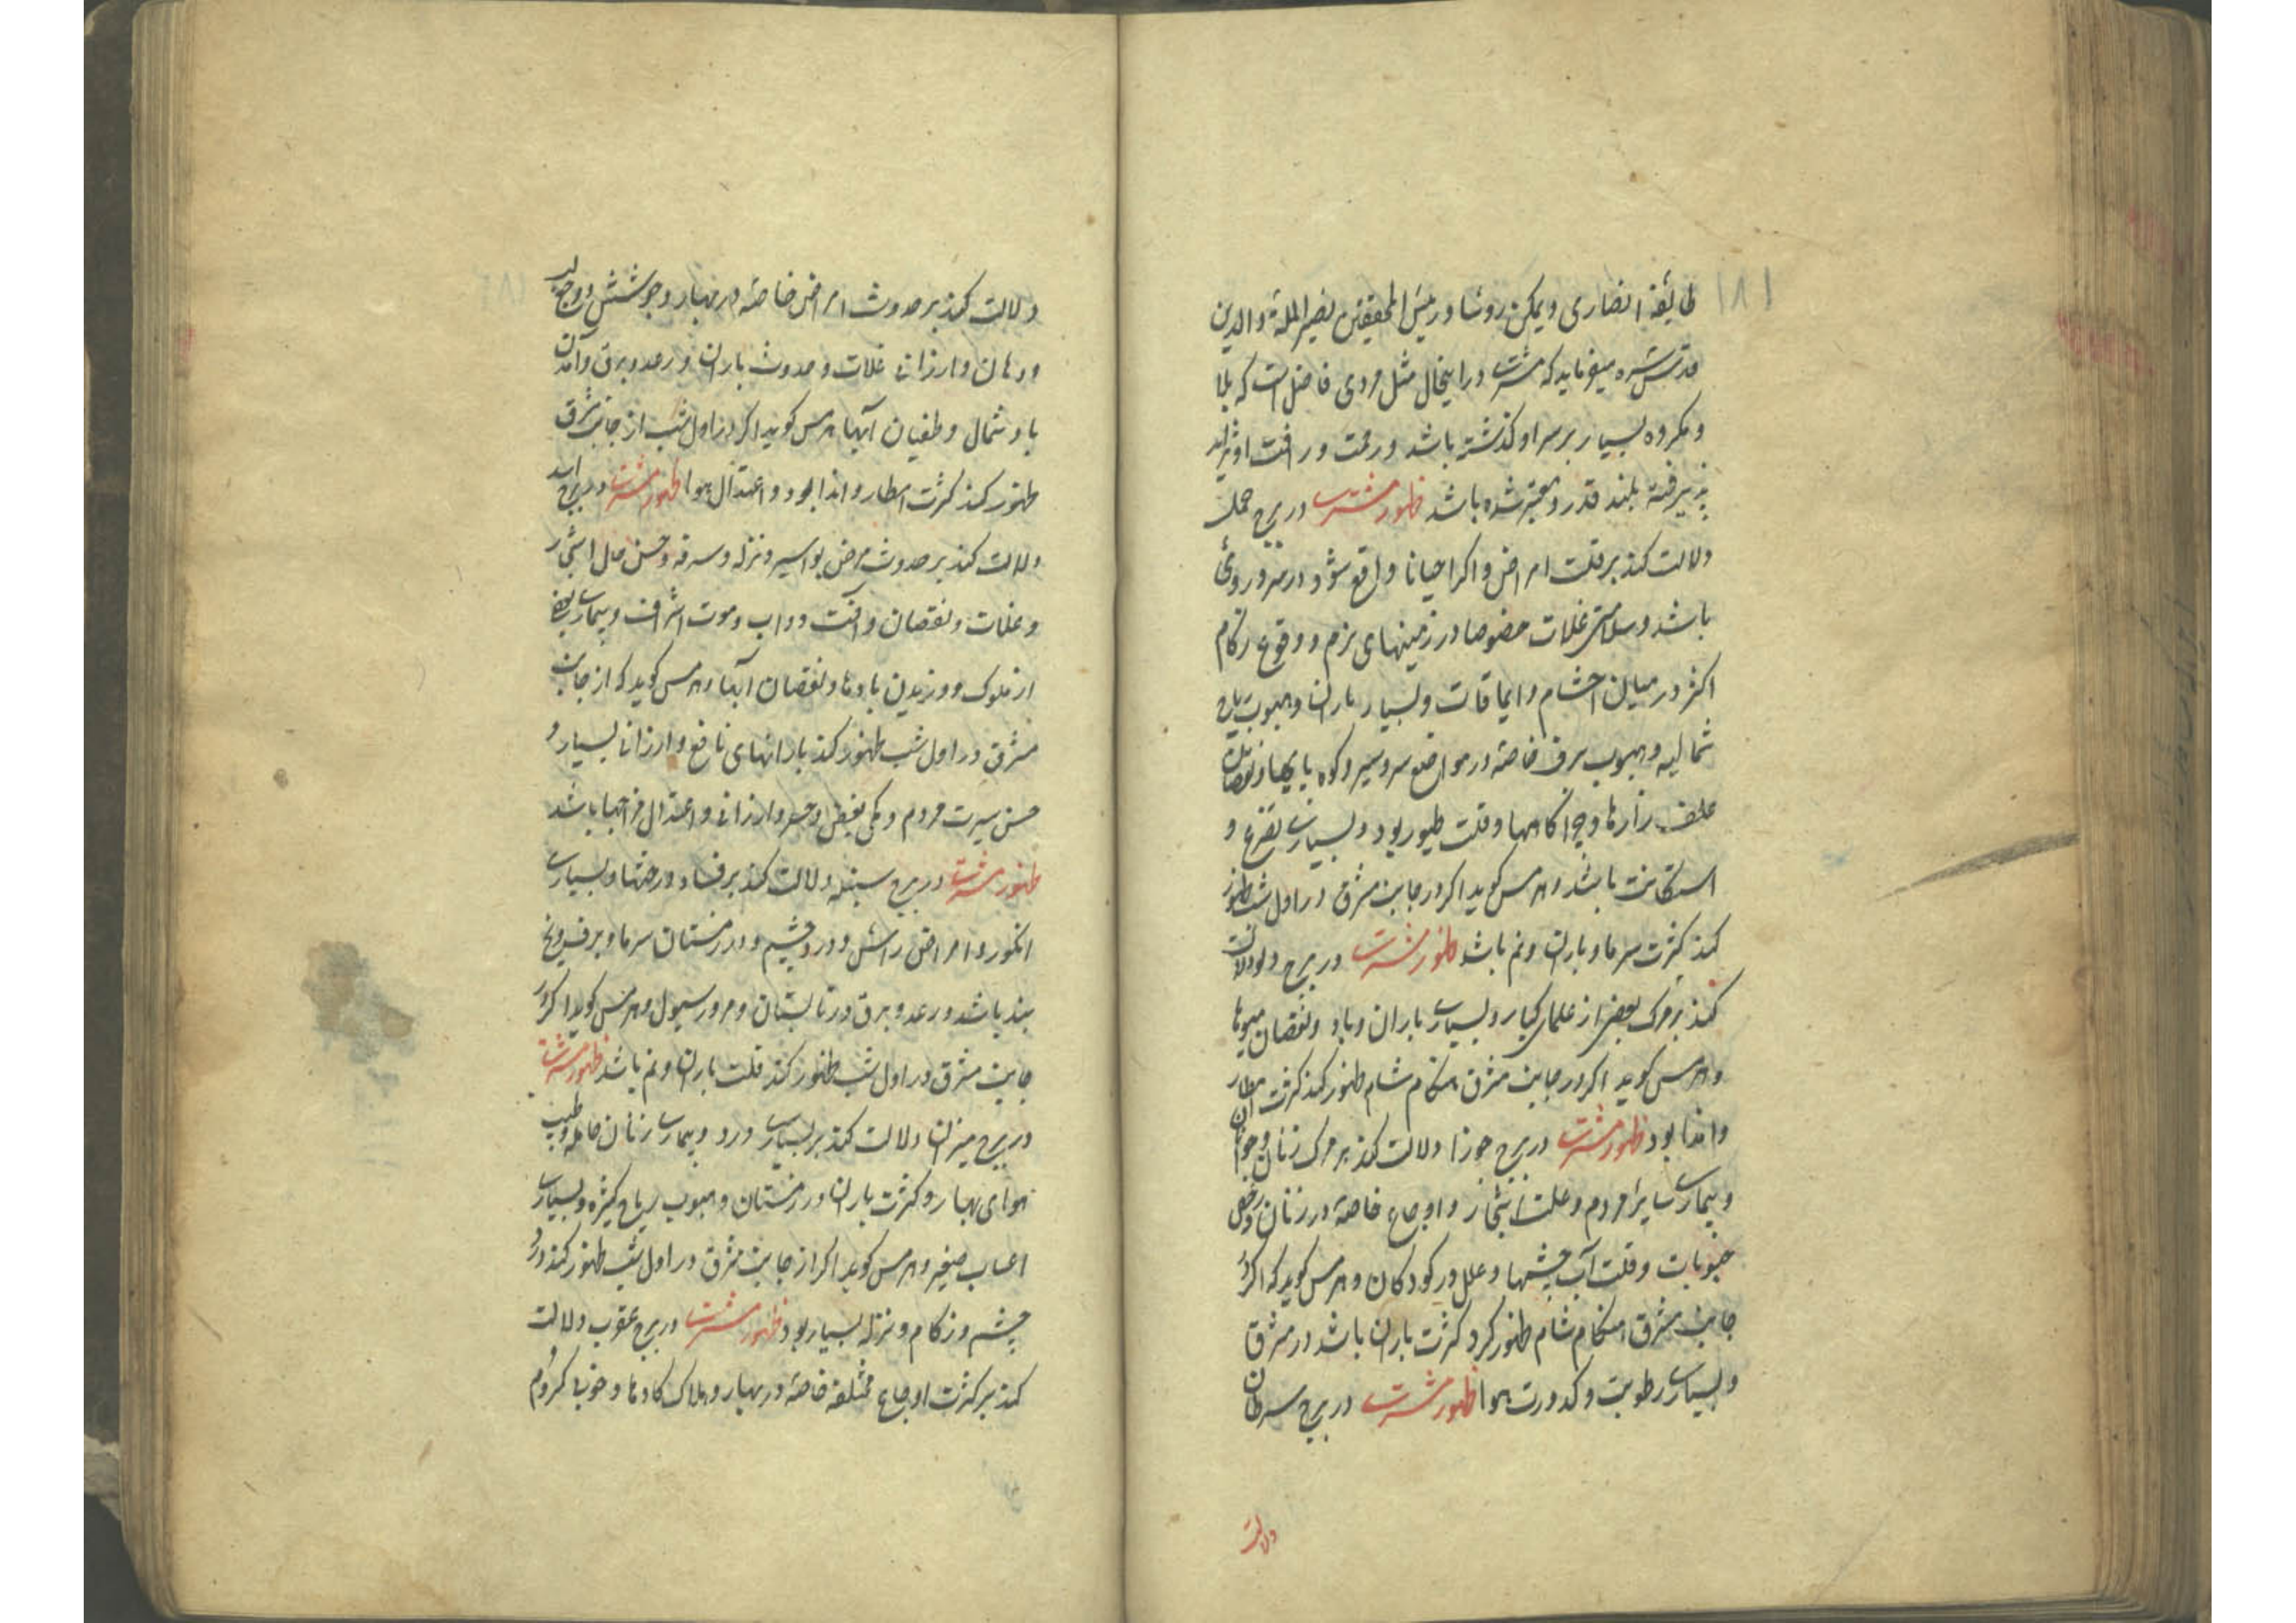 ۱۸۱
طایفه انصاری و یمکن روشا و رئیس المحققین نصیر الملة والدین
قدس سره میفرماید که مشتری در اینحال مثل مردی فاضل است که بلا
و مکروه بسیار بر سر او کذشته باشد و رحمت و رافت او
پذیرفته بلند قدر و معتبر شده باشد ظهور مشتری در برج حمل
دلالت کند بر قلت امراض و اکر احیانا واقع شود در سر و روی
باشد و سلامتی غلات خصوصا در زمینهای نرم و وقوع زکام
اکثر در میان احشام و ایماقات و بسیار باران و هبوب ریاح
شمالیه و هبوب برف خاصة در مواضع سردسیر و کوه پایها و نقصان
علف زارها و چراکاهها و قلت طیور بود و بسیاری تضرع و
استکانت باشد و هرمس کوید اکر در جانب مشرق در اول شب ظهور
کند کثرت سرما و باران و نم باشد ظهور مشتری در برج دلو دلالت
کند بر مرک بعضی از علمای کبار و بسیاری باران و باد و نقصان میوها
و هرمس کوید اکر در جانب مشرق هنکام شام ظهور کند کثرت امطار
و اندا بود ظهور مشتری در برج جوزا دلالت کند بر مرک زنان و جوانان
و بیماری سایر مردم و علت اشجار و اوجاع خاصة در زنان و رخص
حبوبات و قلت آب چشمها و علل در کودکان و هرمس کوید که اکر در
جانب مشرق هنکام شام ظهور کرد کثرت باران باشد در مشرق
و بسیاری رطوبت و کدورت هوا ظهور مشتری در برج سرطان
دلالت
دلالت کند بر حدوث امراض خاصة در بهار و جوشش و وجع
و دهان و ارزانی غلات و حدوث باران و رعد و برق و آمدن
باد شمال و طغیان آبها هرمس کوید اکر در اول شب از جانب شرق
ظهور کند کثرت امطار و اندا بود و اعتدال هوا ظهور مشتری در برج اسد
دلالت کند بر حدوث مرض بواسیر و نزله و سرفه و حسن حال اشجار
و غلات و نقصان و آفت دواب و موت اشراف و بیماری بعضی
از ملوک و وزیدن بادها و نقصان آبها و هرمس کوید که از جانب
مشرق در اول شب ظهور کند بارانهای نافع و ارزانی بسیار و
حسن سیرت مردم و کمی بغض و حسد و ارزانی و اعتدال مزاجها باشد
ظهور مشتری در برج سنبله دلالت کند بر فساد درختها و بسیاری
انکور و امراض راس و درد چشم و در زمستان سرما و برف و یخ
بند باشد و رعد و برق در تابستان و مرور سیول و هرمس کوید اکر در
جانب مشرق در اول شب ظهور کند قلت باران و نم باشد ظهور مشتری
در برج میزان دلالت کند بر بسیاری درد و بیماری زنان حامله و طیب
هوای بهار و کثرت باران در زمستان و هبوب ریاح کثیره و بسیاری
اعساب صغیر و هرمس کوید اکر از جانب مشرق در اول شب ظهور کند درد
چشم و زکام و نزله بسیار بود ظهور مشتری در برج عقرب دلالت
کند بر کثرت اوجاع مختلفه خاصة در بهار و هلاک کاوها و خوبی کروم